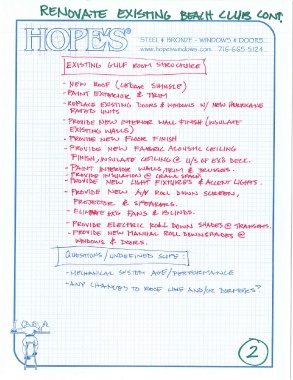 RENOVATE EXISTING BEACH CLUB CONT.
HOPE'S
STEEL & BRONZE - WINDOWS & DOORS
www.hopeswindows.com 716-665-5124
EXISTING GULF ROOM STRUCTURE
- NEW ROOF (CEDAR SHINGLE)
- PAINT EXTERIOR & TRIM
- REPLACE EXISTING DOORS & WINDOWS W/ NEW HURRICANE
RATED UNITS
- PROVIDE NEW INTERIOR WALL FINISH (INSULATE
EXISTING WALLS)
- PROVIDE NEW FLOOR FINISH
- PROVIDE NEW FABRIC ACOUSTIC CEILING
FINISH, INSULATE CEILING @ U/S OF EXG DECK.
- PAINT INTERIOR WALLS, TRIM & TRUSSES.
- PROVIDE INSULATION @ CRAWL SPACE
- PROVIDE NEW LIGHT FIXTURES & ACCENT LIGHTS.
- PROVIDE NEW A/V ROLL DOWN SCREEN,
PROJECTOR & SPEAKERS.
- ELIMINATE EXG FANS & BLINDS.
- PROVIDE ELECTRIC ROLL DOWN SHADES @ TRANSOMS.
- PROVIDE NEW MANUAL ROLL DOWN SHADES @
WINDOWS & DOORS.
QUESTIONS/UNDEFINED SCOPE:
- MECHANICAL SYSTEM AGE/PERFORMANCE
- ANY CHANGES TO ROOF LINE AND/OR DORMERS?
2